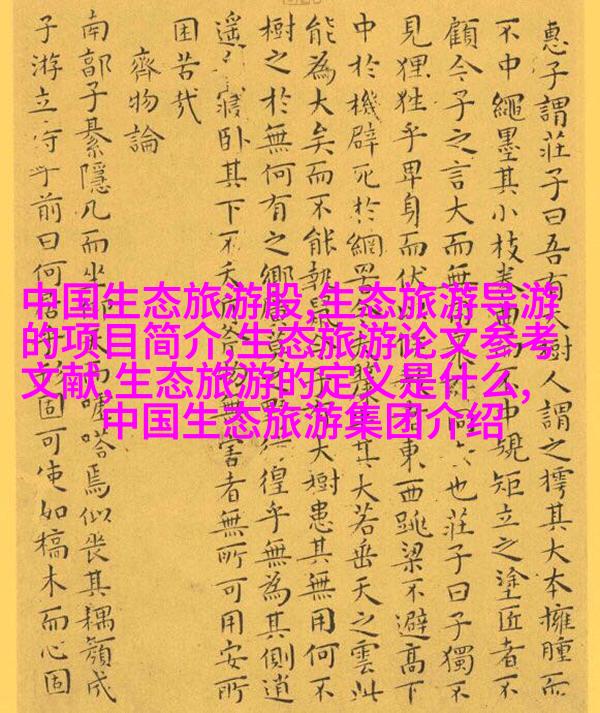 惠子謂莊子曰吾有大樹人謂之樗其大本擁腫而
不中繩墨其小枝卷曲而不中規矩立之塗匠者不
顧今子之言大而無用也莊子曰子獨不
見狸狌乎卑身而伏東西跳梁不避高下
中於機辟死於網罟其大若垂天之雲此
能為大矣而不能執鼠今子大樹患其無用何不
樹之於無何有之鄉廣莫之野徨乎無為其側逍
遙寢臥其下不夭斤斧物無害者無所可用安所
困苦哉
齊物論
南郭子綦隱几而坐仰天而噓嗒焉似喪其耦顏成
子游立侍乎前曰何居乎形固可使如槁木而心固
中国生态旅游股,生态旅游导游
的项目简介,生态旅游论文参考
文献,生态旅游的定义是什么,
中国生态旅游集团介绍